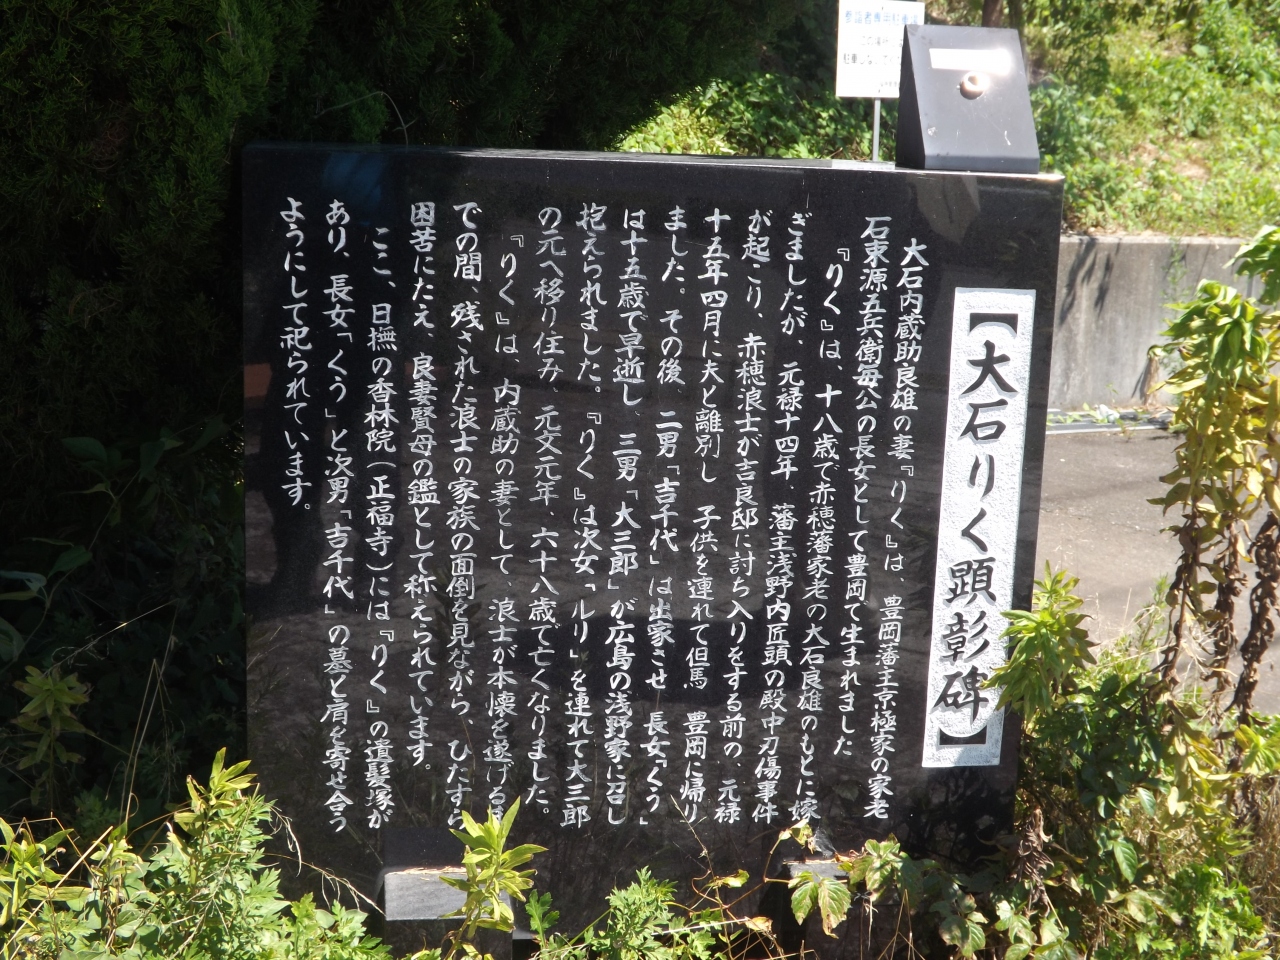 【大石りく顕彰碑】
大石内蔵助良雄の妻『りく』は、豊岡藩主京極家の家老
石束源五兵衛毎公の長女として豊岡で生まれました
『りく』は、十八歳で赤穂藩家老の大石良雄のもとに嫁
ぎましたが、元禄十四年、藩主浅野内匠頭の殿中刃傷事件
が起こり、赤穂浪士が吉良邸に討ち入りをする前の、元禄
十五年四月に夫と離別し 子供を連れて但馬 豊岡に帰り
ました。その後、二男「吉千代」は出家させ 長女「くう」
は十五歳で早逝し、三男「大三郎」が広島の浅野家に召し
抱えられました。『りく』は次女「ルリ」を連れて大三郎
の元へ移り住み、元文元年、六十八歳で亡くなりました。
『りく』は、内蔵助の妻として、浪士が本懐を遂げる
での間、残された浪士の家族の面倒を見ながら、ひたすら
困苦にたえ、良妻賢母の鑑として称えられています。
ここ、日撫の香林院(正福寺)には『りく』の遺髪塚が
あり、長女「くう」と次男「吉千代」の墓と肩を寄せ合う
ようにして祀られています。